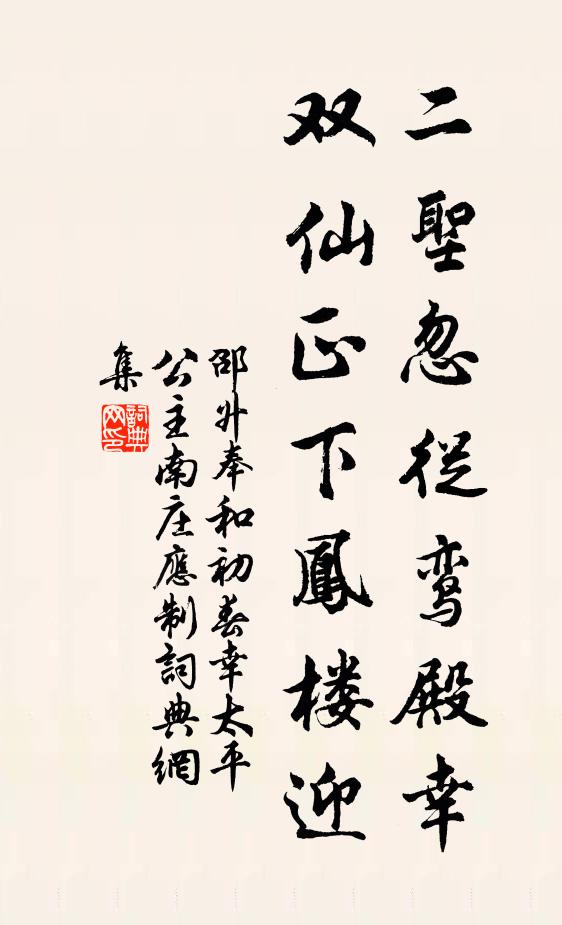 二聖忽從鸾殿幸
双仙正下鳳楼迎
邵升奉和初春幸太平
公主南庄應制詞典網
集
詞典
网印